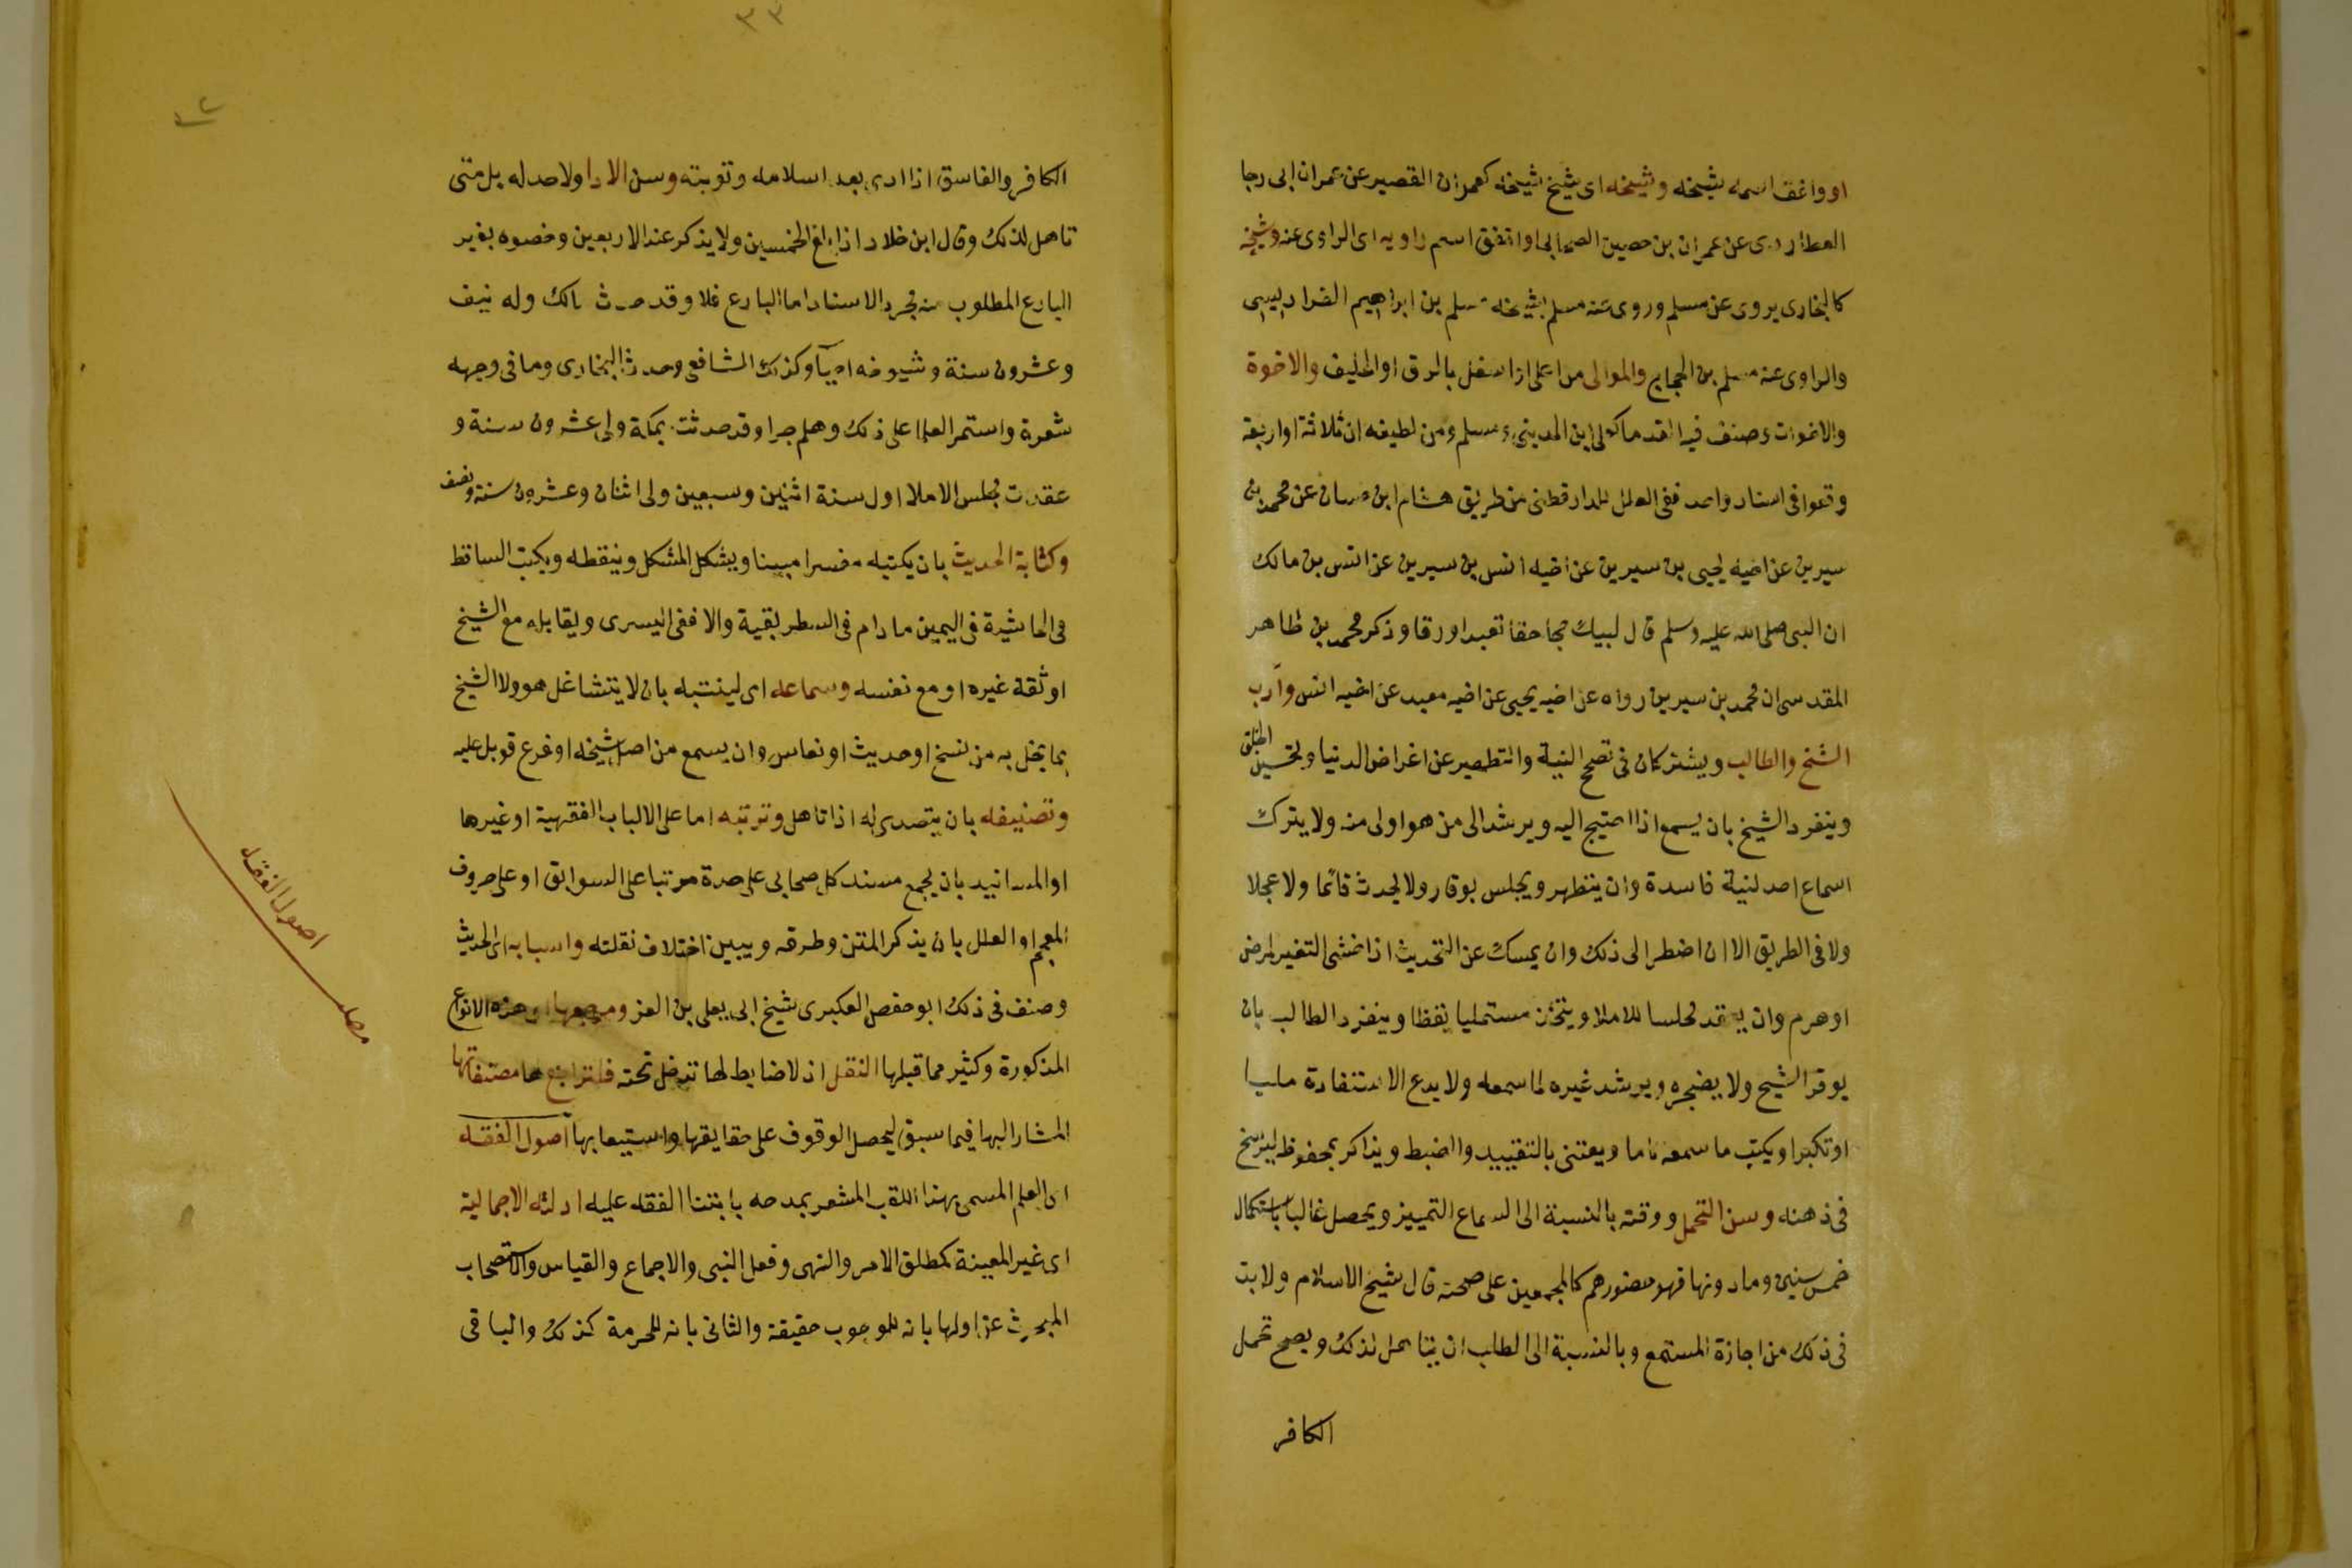 او وافق اسمه شيخه وشيخه اى شيخ شيخه كعمران القصير عن عمران ابى رجا
العطاردى عن عمران بن حصين الصحابى او اتفق اسم راويه اى الراوى عنه وشيخه
كالبخارى يروى عن مسلم وروى عنه مسلم فشيخه مسلم بن ابراهيم الفراديسى
والراوى عنه مسلم بن الحجاج والموالى من اعلى او اسفل بالرق او الحليف والاخوة
والاخوات وصنف فيه القدما كعلى ابن المدينى ومسلم ومن لطيفه ان ثلاثة او اربعة
وقعوا فى اسناد واحد ففى العلل للدارقطنى من طريق هشام ابن حسان عن محمد بن
سيرين عن اخيه يحيى بن سيرين عن اخيه انس بن سيرين عن انس بن مالك
ان النبى صلى الله عليه وسلم قال لبيك حجا حقا تعبدا ورقا وذكر محمد بن طاهر
المقدسى ان محمد بن سيرين رواه عن اخيه يحيى عن اخيه معبد عن اخيه انس وآداب
الشيخ والطالب ويشتركان فى تصحيح النية والتطهير عن اغراض الدنيا وتحسين الخلق
وينفرد الشيخ بان يسمع اذا احتيج اليه ويرشد الى من هو اولى منه ولا يترك
اسماع احد لنية فاسدة وان يتطهر ويجلس بوقار ولا يحدث قائما ولا عجلا
ولا فى الطريق الا ان اضطر الى ذلك وان يمسك عن التحديث اذا خشى التغير لمرض
او هرم وان يعقد مجلسا للاملا ويتخذ مستمليا يقظا وينفرد الطالب بان
يوقر الشيخ ولا يضجره ويرشد غيره لما سمعه ولا يدع الاستفادة لحيا
او تكبر او يكتب ما سمعه تاما ويعتنى بالتقييد والضبط ويذاكر بمحفوظه ليترسخ
فى ذهنه وسن التحمل ووقته بالنسبة الى السماع التمييز ويحصل غالبا باستكمال
خمس سنين وما دونها فهو حضور هم كالمجمعين على صحته قال شيخ الاسلام ولا بد
فى ذلك من اجازة المستمع وبالنسبة الى الطلب ان يتاهل لذلك ويصح تحمل
الكافر
٣٣
الكافر والفاسق اذا ادى بعد اسلامه وتوبته وسن الادا ولا حد له بل متى
تاهل لذلك وقال ابن خلاد اذا بلغ الخمسين ولا ينكر عند الاربعين وخصوه بغير
البارع المطلوب منه مجرد الاسناد اما البارع فلا وقد حدث مالك وله نيف
وعشرون سنة وشيوخه احيآ وكذلك الشافعى وحدث البخارى وما فى وجهه
شعرة واستمر العلما على ذلك وهلم جرا وقد حدثت بمكة ولى عشرون سنة و
عقدت مجلس الاملا اول سنة اثنين وسبعين ولى اثنان وعشرون سنة ونصف
وكتابة الحديث بان يكتبه مفسرا مبينا ويشكل المشكل وينقطه ويكتب الساقط
فى الحاشية فى اليمين ما دام فى السطر بقية والا ففى اليسرى ويقابله مع الشيخ
او ثقة غيره او مع نفسه وسماعه اى لينتبه بان لا يتشاغل هو ولا الشيخ
بما يخل به من نسخ او حديث او نعاس وان يسمع من اصل شيخه او فرع قوبل عليه
وتصنيفه بان يتصدى له اذا تاهل وترتبه اما على الابواب الفقهية او غيرها
او المسانيد بان يجمع مسند كل صحابى على حدة مرتبا على السوابق او على حروف
المعجم او العلل بان يذكر المتن وطرقه ويبين اختلاف نقلته واسبابه اى الحديث
وصنف فى ذلك ابو حفص العكبرى شيخ ابى يعلى بن الفرا ومرجعها اى هذه الانواع
المذكورة وكثير مما قبلها النقل اذ لا ضابط لها تدخل تحته فلتراجع لها مصنفاتها
المشار اليها فيما سبق ليحصل الوقوف على حقايقها واستيعابها اصول الفقه
اى العلم المسمى بهذا اللقب المشعر بمدحه بابتنا الفقه عليه ادلته الاجمالية
اى غير المعينة كمطلق الامر والنهى وفعل النبى والاجماع والقياس والاستصحاب
المبحوث عن اولها بانه للوجوب حقيقة والثانى بانه للحرمة كذلك والباقى
اصول الفقه